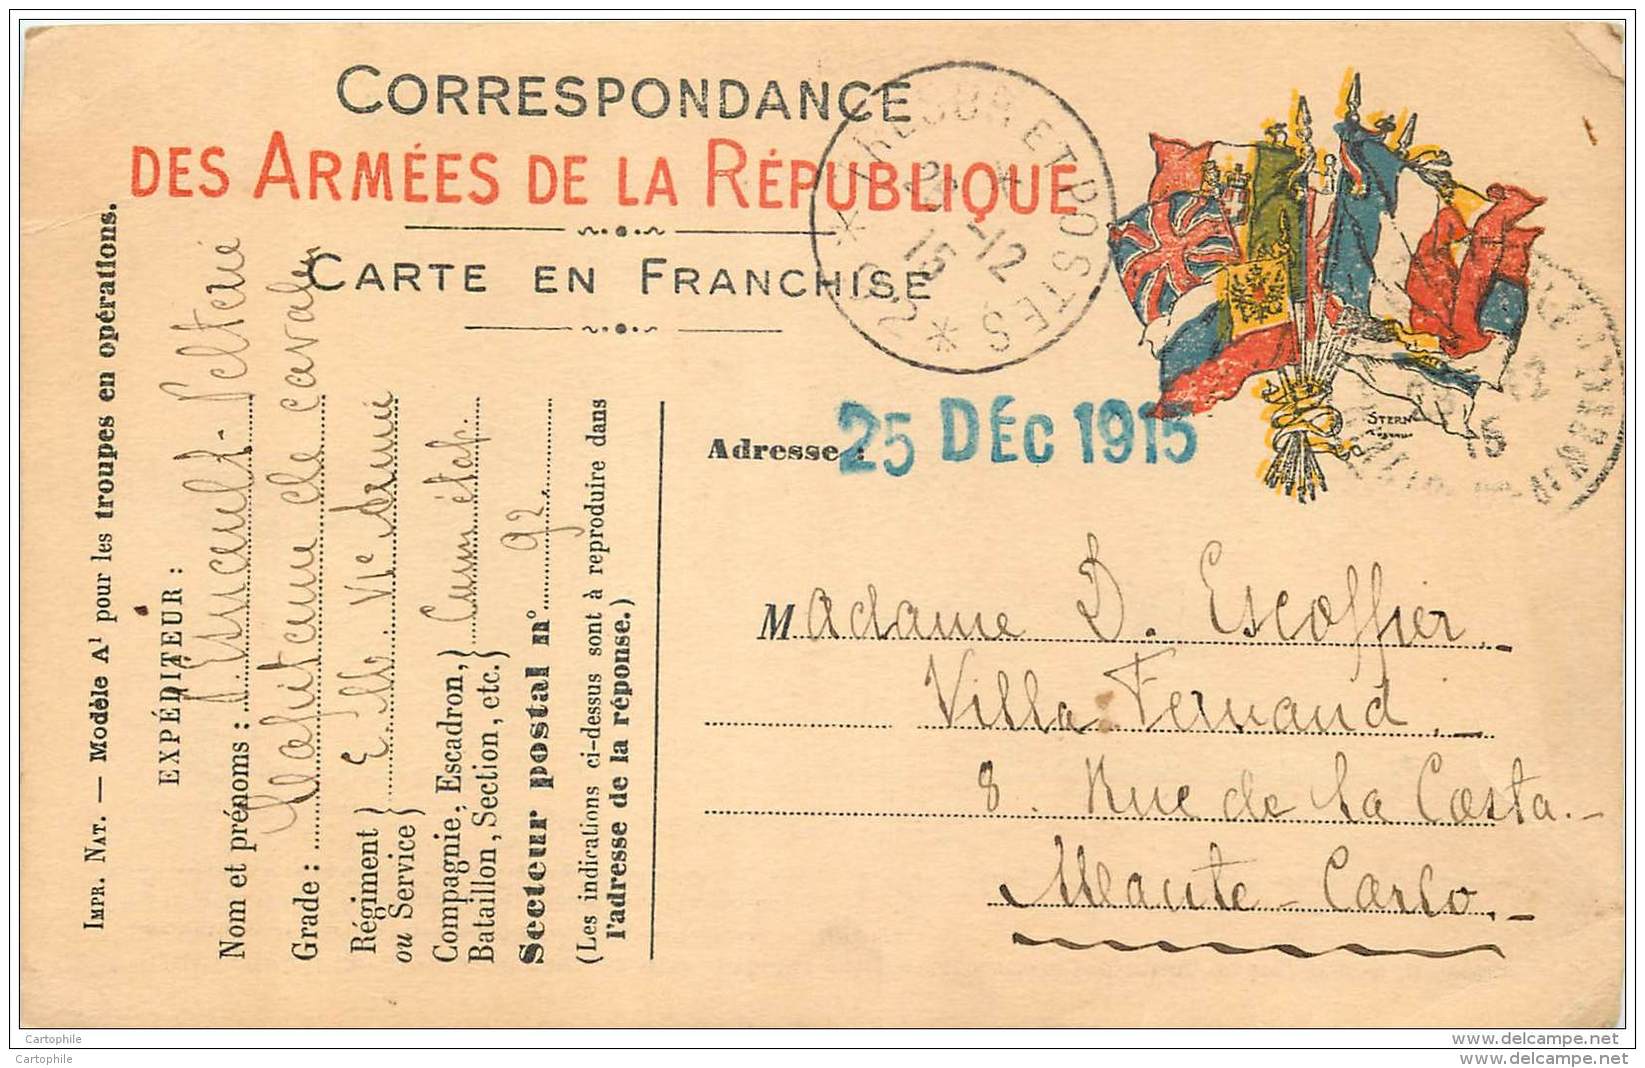 CORRESPONDANCE
DES ARMÉES DE LA RÉPUBLIQUE
CARTE EN FRANCHISE
TRESOR ET POSTES
23 -12
15
25 DÉC 1915
STERN
12
15
Adresse :
Madame D. Escoffier.
Villa Fernand.
8. Rue de la Costa.-
Monte-Carlo.-
IMPR. NAT. — Modèle A1 pour les troupes en opérations.
EXPÉDITEUR :
Nom et prénoms :
Grade : Capitaine de cavalerie
Régiment
ou Service } VIe Armée
Compagnie, Escadron,
Bataillon, Section, etc. }
Secteur postal n° 92
(Les indications ci-dessus sont à reproduire dans
l'adresse de la réponse.)
Cartophile
Cartophile
www.delcampe.net
www.delcampe.net